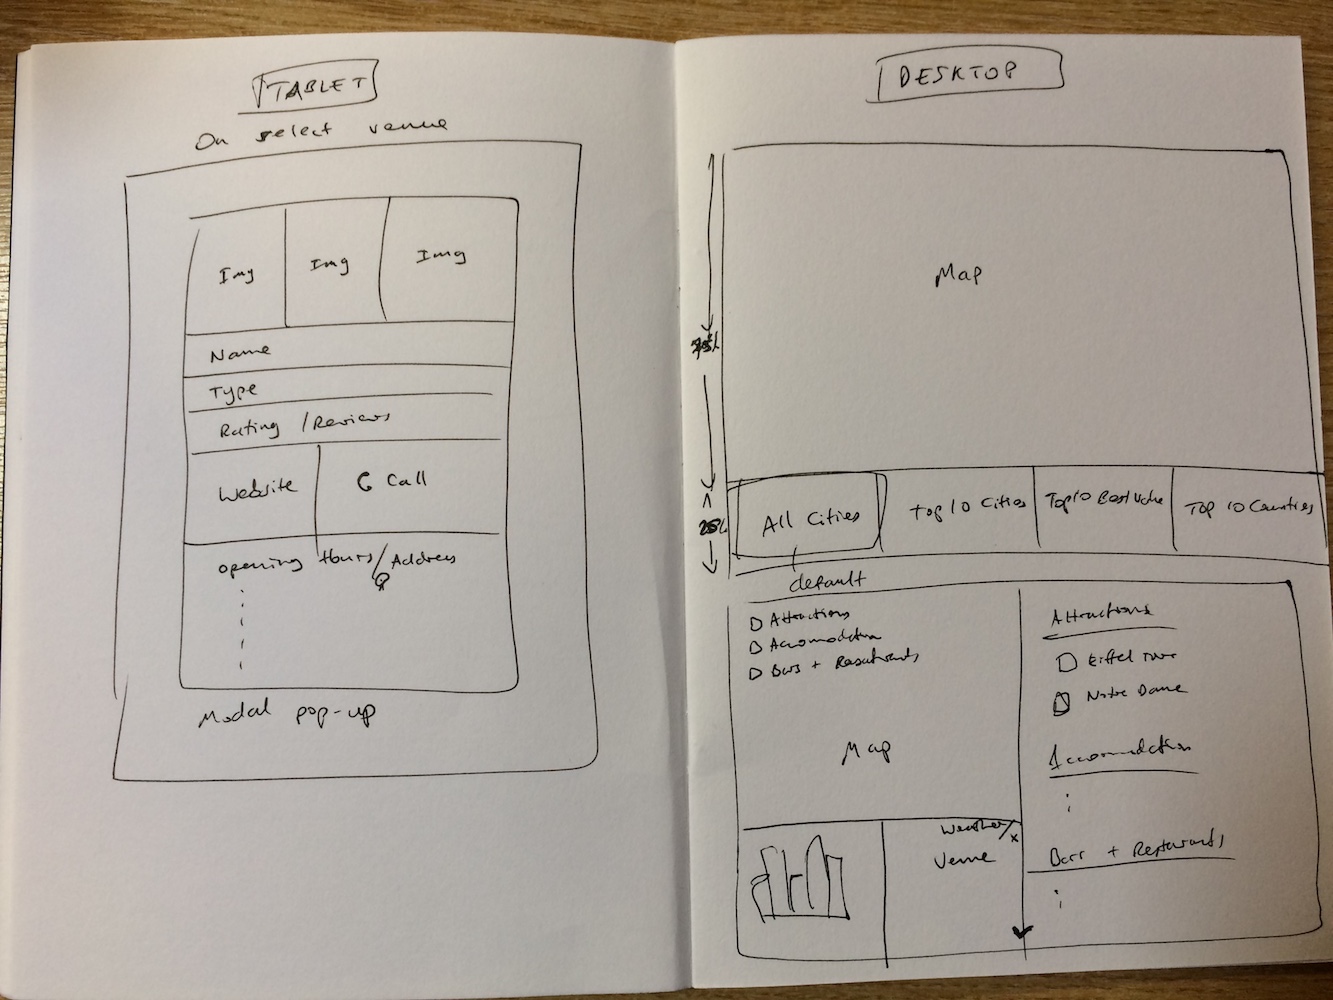 TABLET
On select venue
Img Img Img
Name
Type
Rating / Reviews
Website Call
opening Hours / Address
Modal pop-up
DESKTOP
Map
75%
25%
All Cities Top 10 Cities Top 10 Best Value Top 10 Countries
default
Attractions
Accomodation
Bars + Restaurants
Map
Weather/
Venue
x
Attractions
Eiffel Tower
Notre Dame
Accomodation
Bars + Restaurants